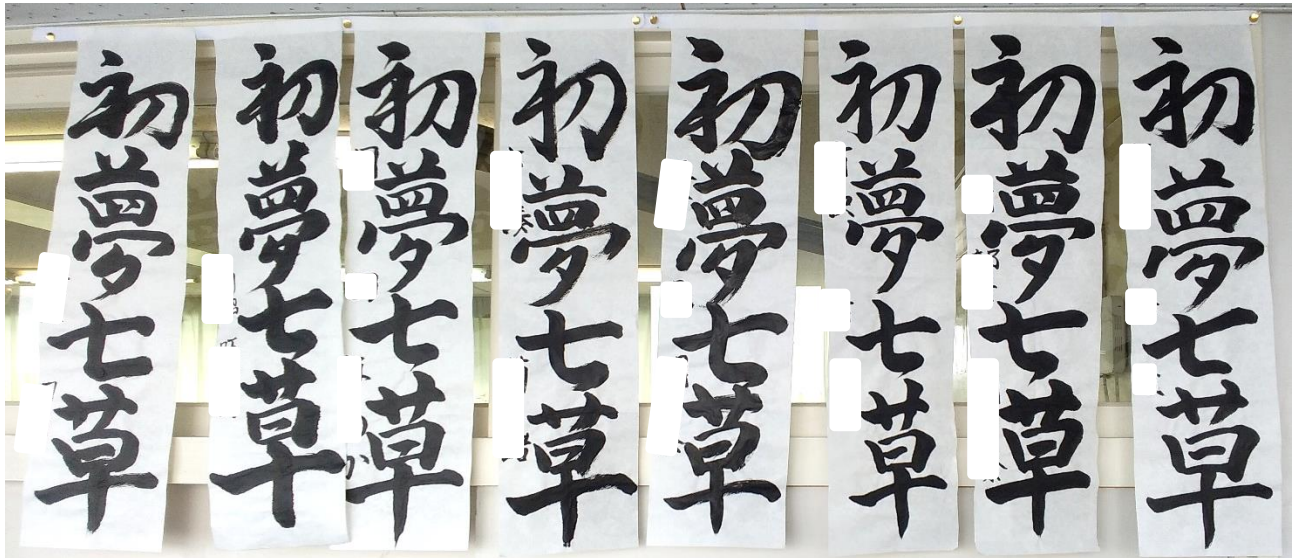 初夢七草
初夢七草
初夢七草
初夢七草
初夢七草
初夢七草
初夢七草
初夢七草